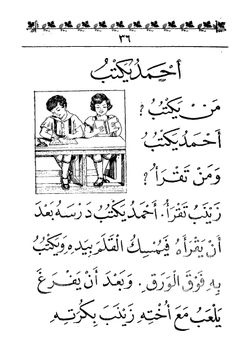 ٣٦
أَحْمَدُ يَكْتُبُ
مَنْ يَكْتُبُ؟
أَحْمَدُ يَكْتُبُ
وَمَنْ تَقْرَأُ؟
زَيْنَبُ تَقْرَأُ. أَحْمَدُ يَكْتُبُ دَرْسَهُ بَعْدَ
أَنْ يَقْرَأَهُ فَيُمْسِكُ الْقَلَمَ بِيَدِهِ وَيَكْتُبُ
بِهِ فَوْقَ الْوَرَقِ. وَبَعْدَ أَنْ يَفْرَغَ
يَلْعَبُ مَعَ أُخْتِهِ زَيْنَبَ بِكُرَتِهِ